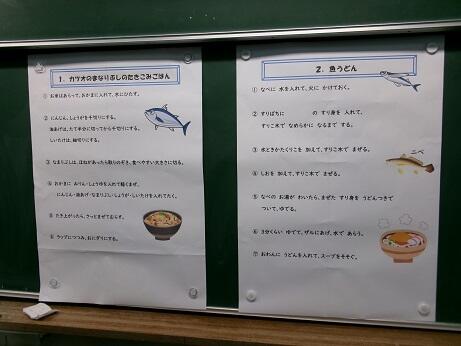 1. カツオのまなりぶしのたきこみごはん
① お米はあらって、おかまに入れて、水にひたす。
② にんじん、しょうがを千切りにする。
油あげは、たて半分に切ってから千切りにする。
しいたけは、細切りにする。
③ なまりぶしは、ほねがあったら取りのぞき、食べやすい大きさに切る。
④ おかまに みりん・しょうゆを入れて軽くまぜ、
にんじん・油あげ・なまりぶし・しょうが・しいたけを入れてたく。
⑤ たき上がったら、さっとまぜてむらす。
⑥ ラップにつつみ、おにぎりにする。
2. 魚うどん
① なべに 水を入れて、火に かけておく。
② すりばちに の すり身を 入れて、
すりこ木で なめらかに なるまで する。
③ 水ときかたくりこを 加えて、すりこ木で まぜる。
ニベ
④ しおを 加えて、すりこ木で まぜる。
⑤ なべの お湯が わいたら、まぜた すり身を うどんつきで
ついて、ゆでる。
⑥ 3分くらい ゆでて、ザルにあげ、水で あらう。
⑦ おわんに うどんを入れて、スープをそそぐ。